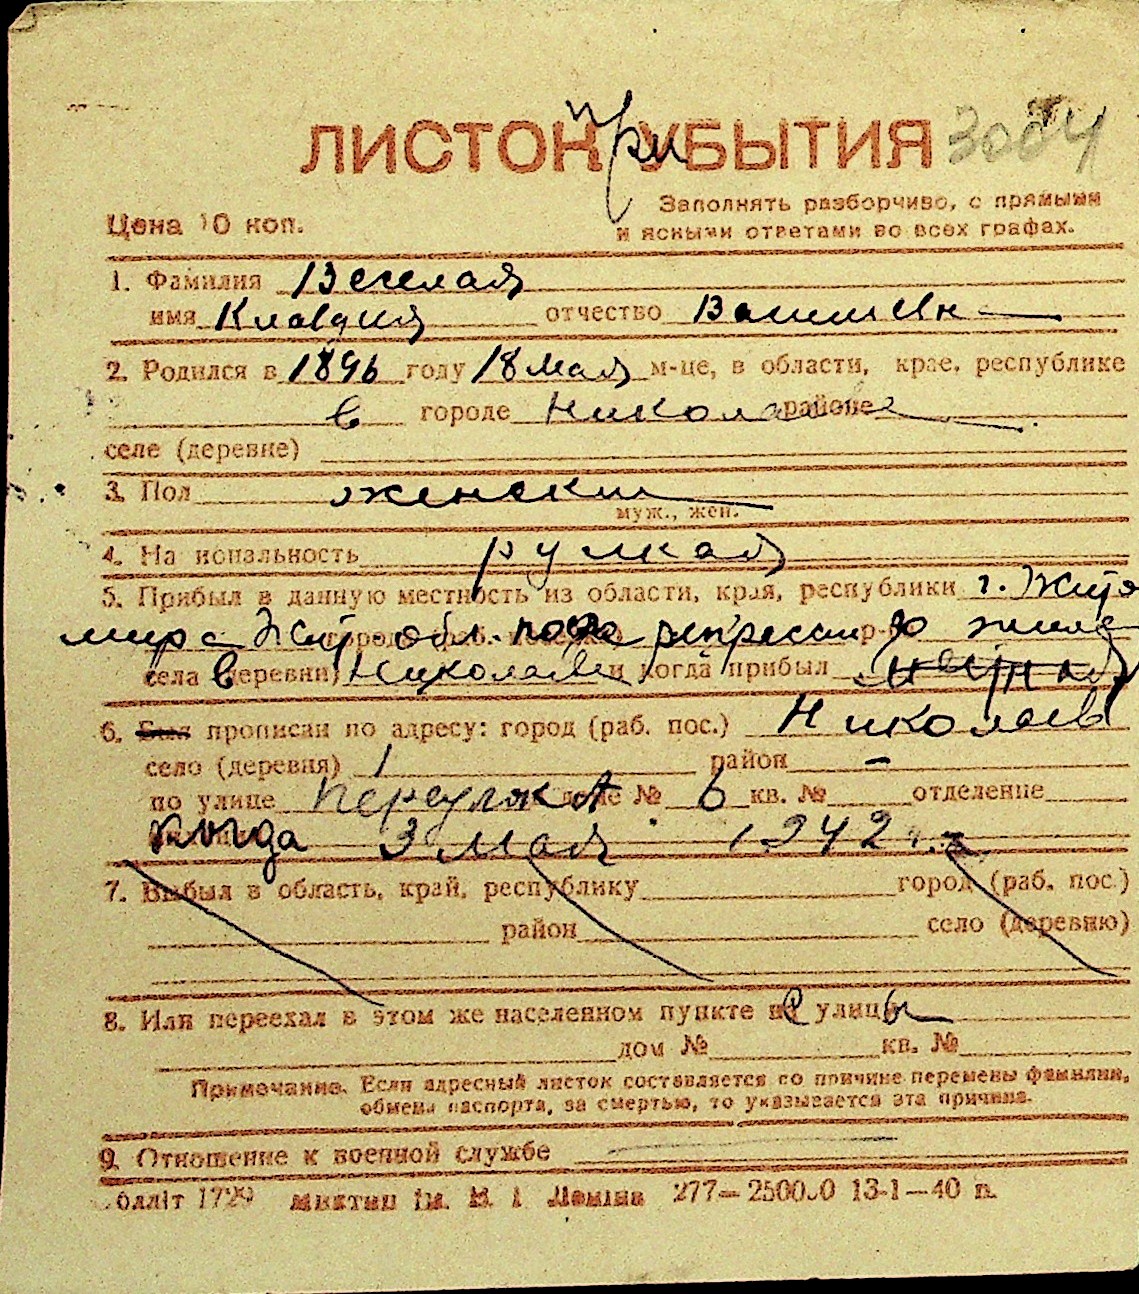 ЛИСТОК при УБЫТИЯ 3004
Заполнять разборчиво, с прямыми
Цена 10 коп. и ясными ответами во всех графах.
1. Фамилия Веселая
имя Клавдия отчество Васильевн
2. Родился в 1896 году 18 мая м-це, в области, крае, республике
в городе Николаеве районе
селе (деревне)
3. Пол женский
муж., жен.
4. Национальность русская
5. Прибыл в данную местность из области, края, республики г. Жито
мира Жит. обл. репрессии до
села (деревни) в Николаеве и когда прибыл
6. Был прописан по адресу: город (раб. пос.) Николаев
село (деревня) 1 район –
по улице доме № 6 кв. № отделение
когда 3 мая 1942 г.
7. Выбыл в область, край, республику город (раб. пос.)
район село (деревню)
8. Или переехал в этом же населенном пункте улицы
дом № кв. №
Примечание. Если адресный листок составляется по причине перемены фамилии,
обмена паспорта, за смертью, то указывается эта причина.
9. Отношение к военной службе
1729 ім. В. І. Леніна 277—250000 13-1—40 п.